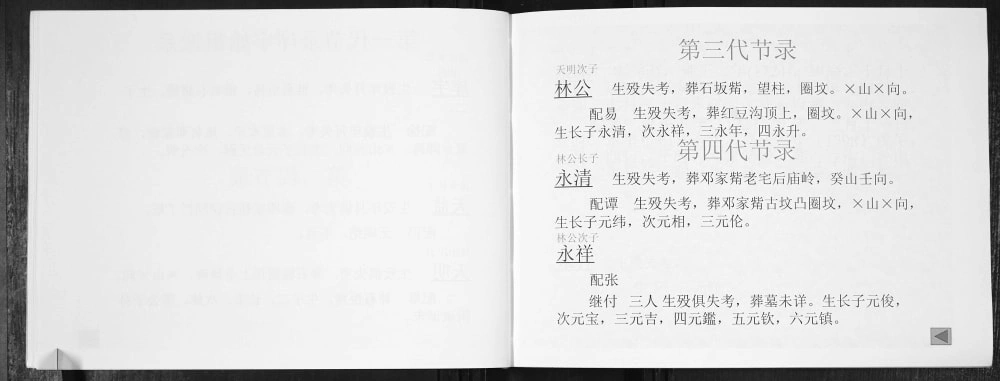 第三代节录
天明次子
林公 生殁失考，葬石坂觜，望柱，圈坟。×山×向。
配易 生殁失考，葬红豆沟顶上，圈坟。×山×向，
生长子永清，次永祥，三永年，四永升。
第四代节录
林公长子
永清 生殁失考，葬邓家觜老宅后庙岭，癸山壬向。
配谭 生殁失考，葬邓家觜古坟凸圈坟，×山×向，
生长子元纬，次元相，三元伦。
林公次子
永祥
配张
继付 三人 生殁俱失考，葬墓未详。生长子元俊，
次元宝，三元吉，四元鑑，五元钦，六元镇。